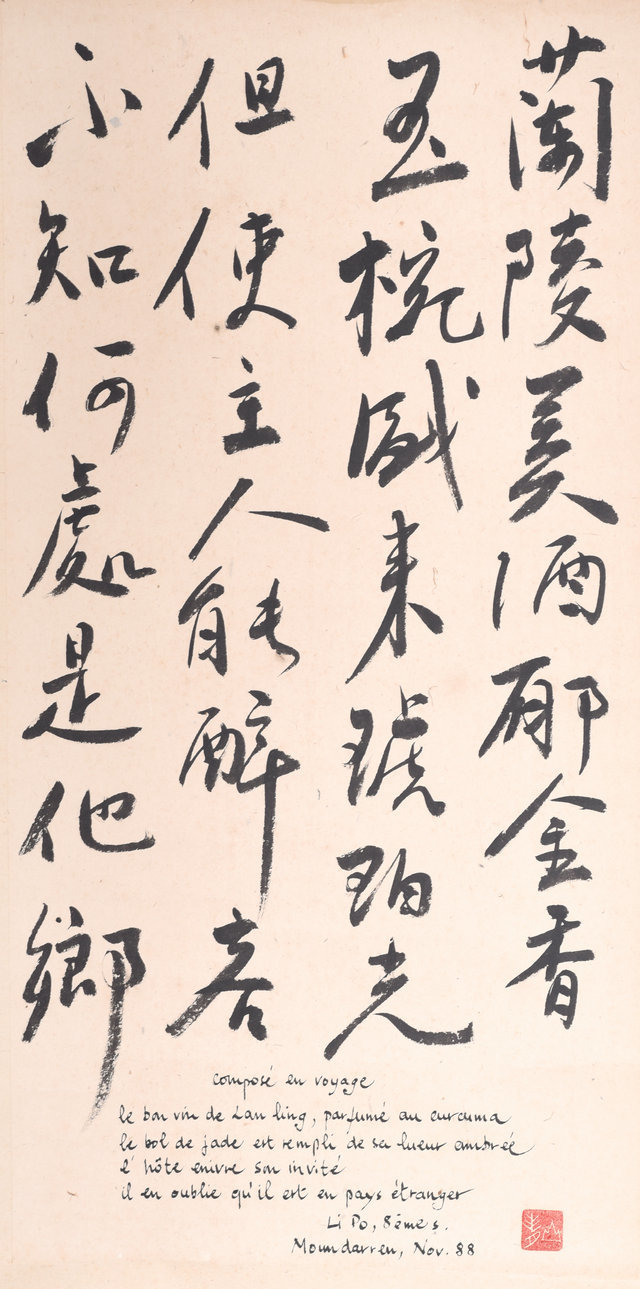 蘭陵美酒郁金香
玉椀盛来琥珀光
但使主人能醉客
不知何處是他鄉
composé en voyage
le bon vin de Lan ling, parfumé au curcuma
le bol de jade est rempli de sa lueur ambrée
l'hôte enivre son invité
il en oublie qu'il est en pays étranger
Li Po, 8ème s.
Moundarren, Nov. 88